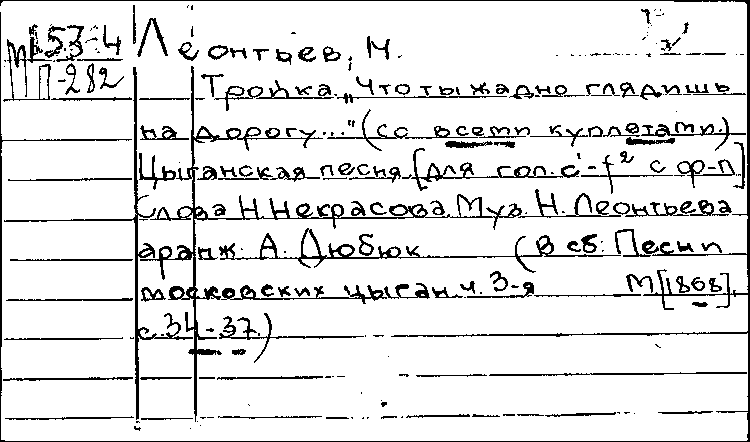 М153-4
МП-282
Леонтьев, Н.
Тройка „Что ты жадно глядишь
на дорогу..." (со всеми куплетами.)
Цыганская песня [для гол. c'-f² с ф-п]
Слова Н. Некрасова. Муз. Н. Леонтьева
аранж. А. Дюбюк (В сб: Песни
московских цыган. ч. 3-я М[1868],
с. 34-37.)